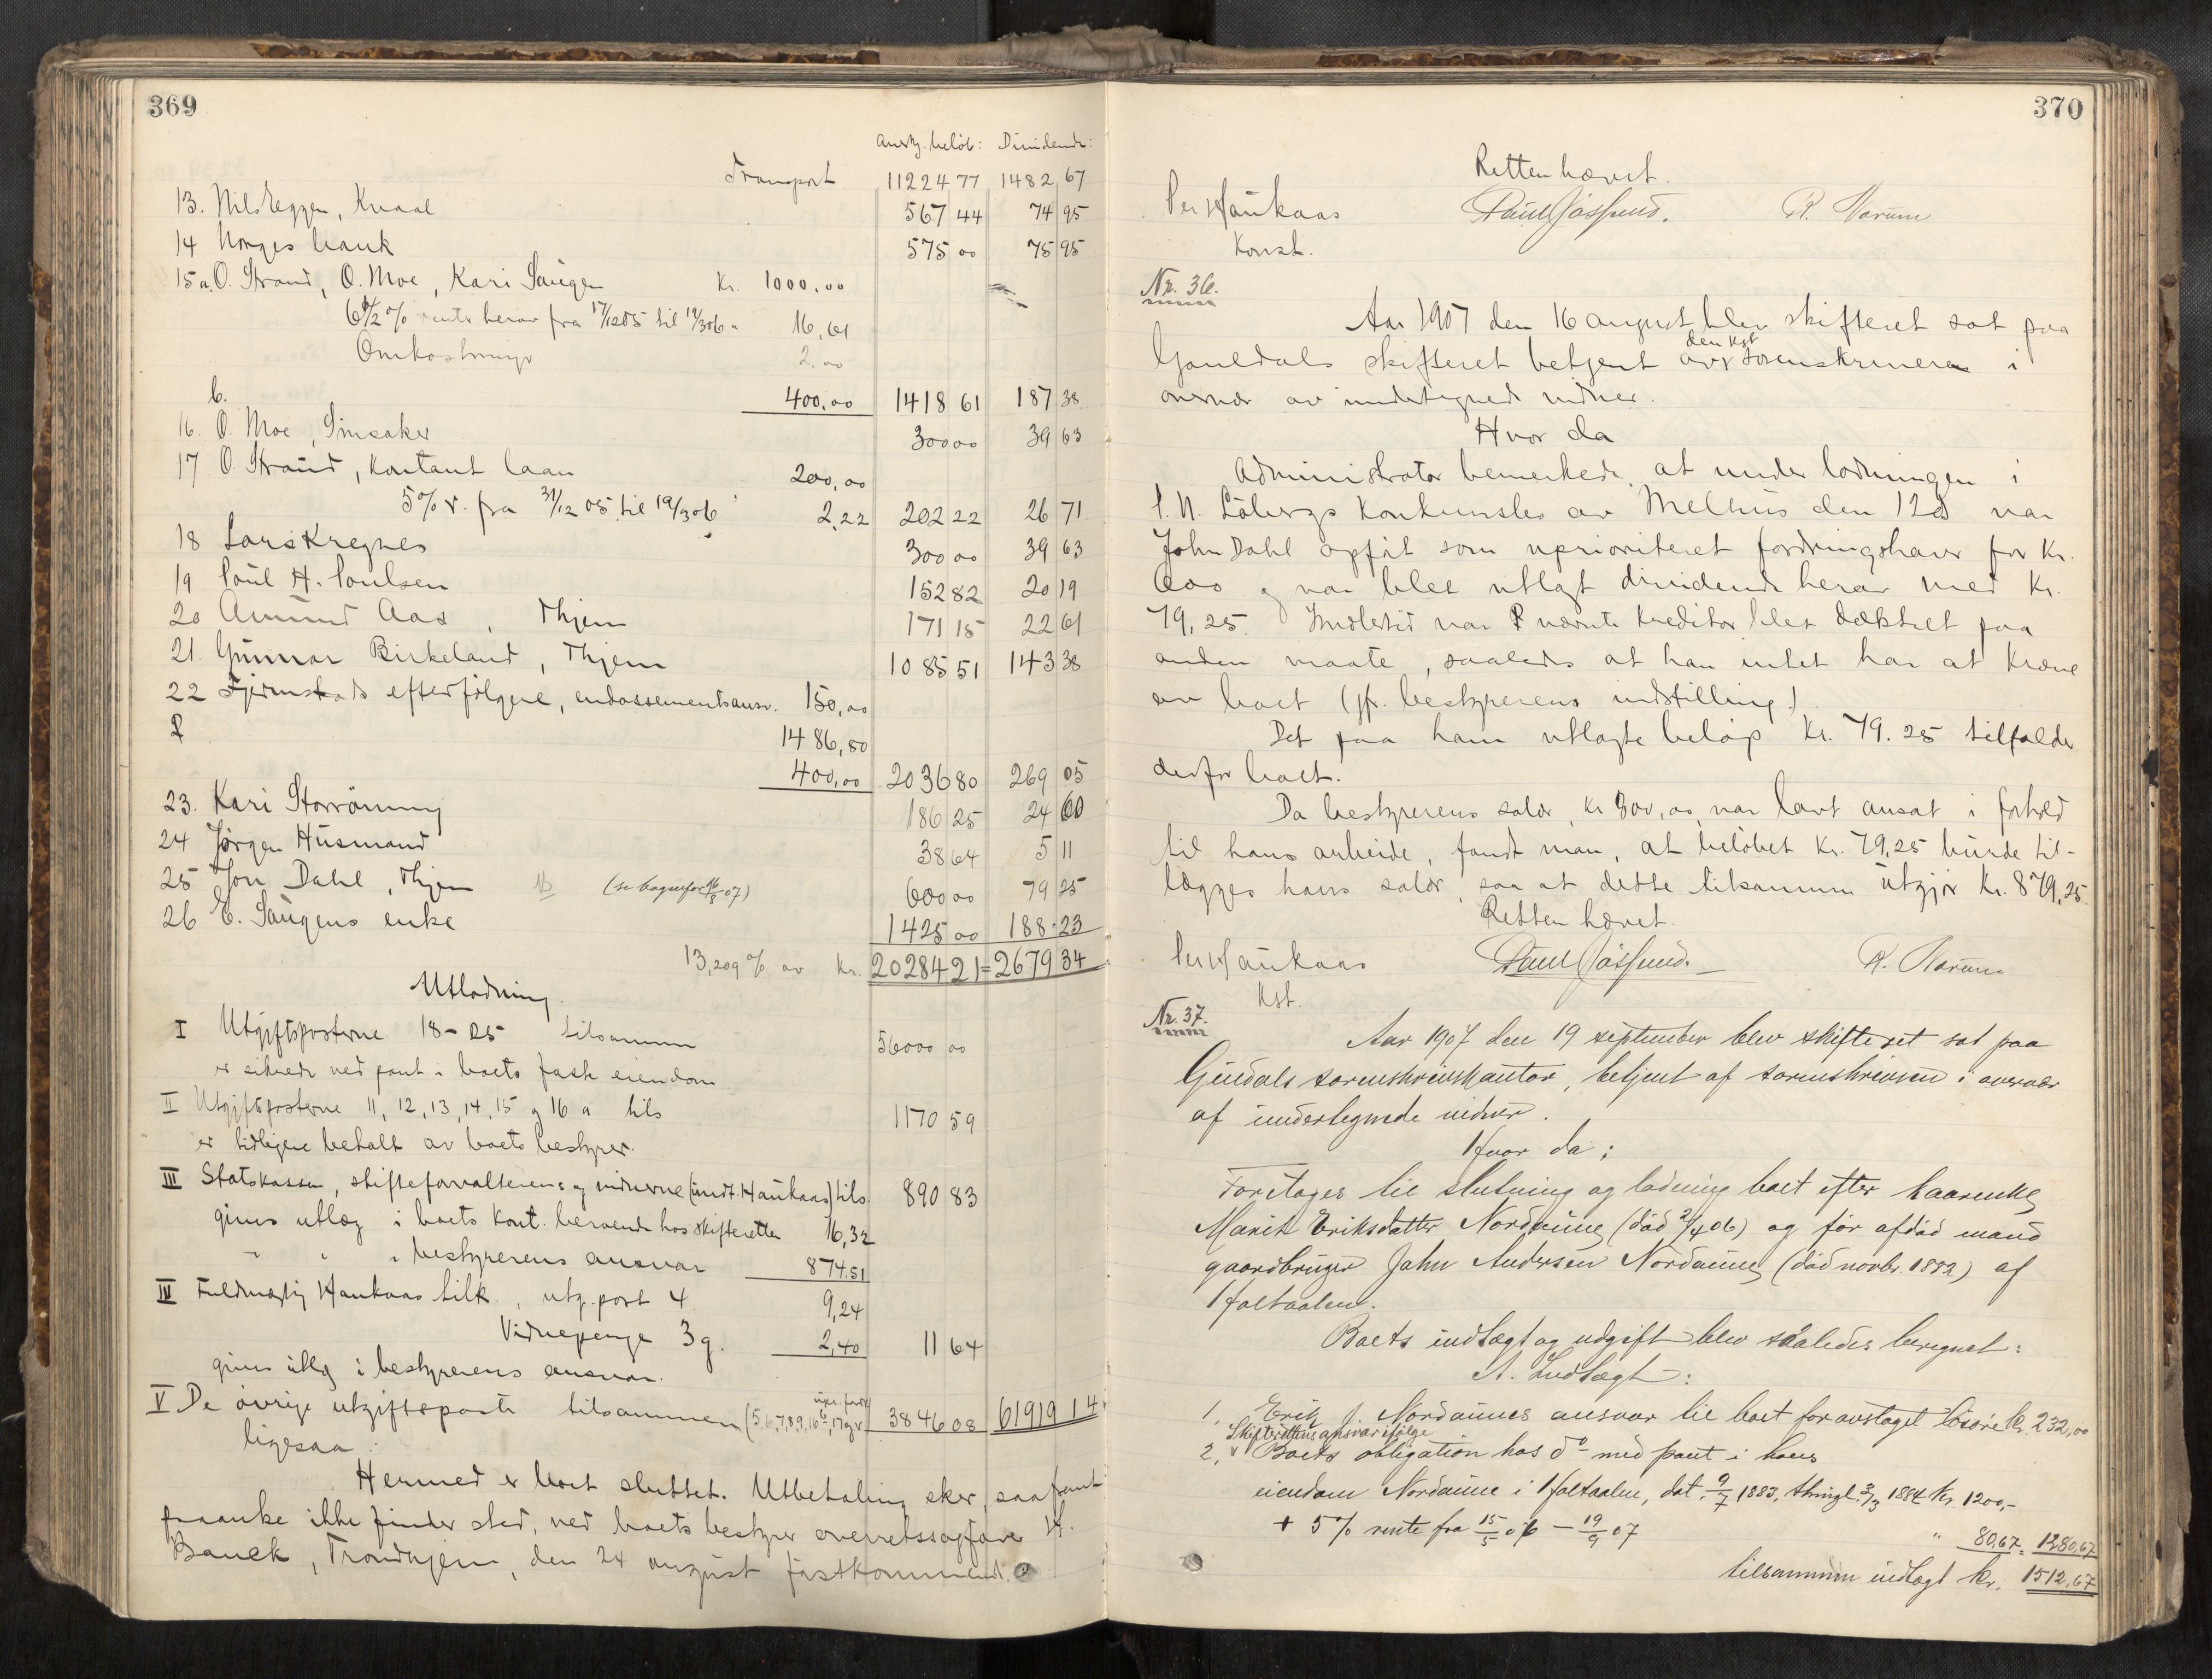 369
Ansk. beløb: Dividende:
Transport 11224 77 1482,67
13. Nils Legger, Kvaal 567 44 74 95
14 Norges bank 575 00 75 95
15 a. O. Strand, O. Moe, Kari Saugen Kr. 1000,00
6 1/2 % rente herav fra 17/12 05 til 19/3 06 " 16,61
Omkostninger 2.00
b. 400,00 1418 61 187 38
16. O. Moe, Simsaker 300 00 39 63
17 O. Strand, kontant laan 200,00
5% r. fra 31/12 05 til 19/3 06 2,22 202 22 26 71
18 Lars Kregnes 300 00 39 63
19 Poul H. Poulsen 152 82 20 19
20 Amund Aas, Thjem 171 15 22 61
21. Gunnar Birkeland, Thjem 1085 51 143 38
22 Fjermstads efterfølgere, endossementsansv. 150,00
1486,80
400,00 2036 80 269 05
23. Kari Storrönning 186 25 24 60
24 Jørgen Husmand 38 64 5 11
25 Jon Dahl, Thjem (se bagenfor 16/8 07) 600 00 79 25
26 E. Saugens enke 1425 00 188.23
13,209% av kr. 20284 21 = 2679 34
Utlodning.
I Utgiftsposterne 18-25 tilsammen 56000 00
er sikrede ved pant i boets faste eiendom
II Utgiftsposterne 11, 12, 13, 14, 15 og 16 a tils 1170 59
er tidligere betalt av boets bestyrer.
III Statskassen, skifteforvalteren og vidnerne (undt. Haukaas) tils. 890 83
gives utlæg i boets kont. beroende hos skifteretten 16,32
" " i bestyrerens ansvar 874.51
IV Fuldmægtig Haukaas tilk., utg. post 4 9,24
Vidnepenge 3 g. 2,40 11 64
gives utlæg i bestyrerens ansvar.
V De øvrige utgiftsposter tilsammen (5,6,7,8,9,16b, 17 og 3846 08 61919 14
ligesaa.
Hermed er boet sluttet. Utbetaling sker, saafremt
paaanke ikke finder sted, ved boets bestyrer overretssagfører H.
Bauck, Trondhjem, den 24 august førstkommende.
370
Retten hævet.
Per Haukaas Paul Jøssund. R. Varum
Konst.
Nr. 36.
Aar 1907 den 16 august blev skifteret sat paa
Gauldals skifteret betjent av den kst sorenskriver i
overvær av undertegnede vidner.
Hvor da
Administrator bemerkede, at under lodningen i
P. N. Löbergs konkursbo av Melhus den 12 ds var
John Dahl opført som uprioriteret fordringshaver for kr.
600 og var blet utlagt dividende herav med kr.
79,25. Imidlertid var nævnte kreditor blet dækket paa
anden maate, saaledes at han intet har at kræve
av boet (jfr. bestyrerens indstilling)
Det paa ham utlagte beløp kr. 79.25 tilfalder
derfor boet.
Da bestyrerens salær, kr 800,00, var lavt ansat i forhold
til hans arbeide, fandt man, at beløbet kr. 79,25 burde til-
lægges hans salær, saa at dette tilsammen utgjør kr. 879,25.
Retten hævet.
Per Haukaas Paul Jøssund. R. Varum
Kst.
Nr. 37.
Aar 1907 den 19 september blev skifteret sat paa
Guldals sorenskriverkontor, betjent af sorenskriveren i overvær
af undertegnede vidner.
Hvor da:
Foretages til slutning og lodning boet efter kaarenke
Marit Eriksdatter Nordaune (død 2/4 06) og før afdød mand
gaardbruger John Andersen Nordaune (død novbr. 1882) af
Holtaalen.
Boets indtægt og udgift blev saaledes beregnet:
A. Indtægt:
1. Erik J. Nordaunes ansvar til boet for avstaget løsøre kr. 232,00
Skifterettens ansvar ifølge
2. Boets obligation hos do med pant i hans
eiendom Nordaune i Holtaalen, dat. 9/7 1883, thingl. 3/3 1884 kr. 1200,-
+ 5% rente fra 15/5 06 – 19/9 07
" 80,67 = 1280,67
tilsammen indtægt kr. 1512,67